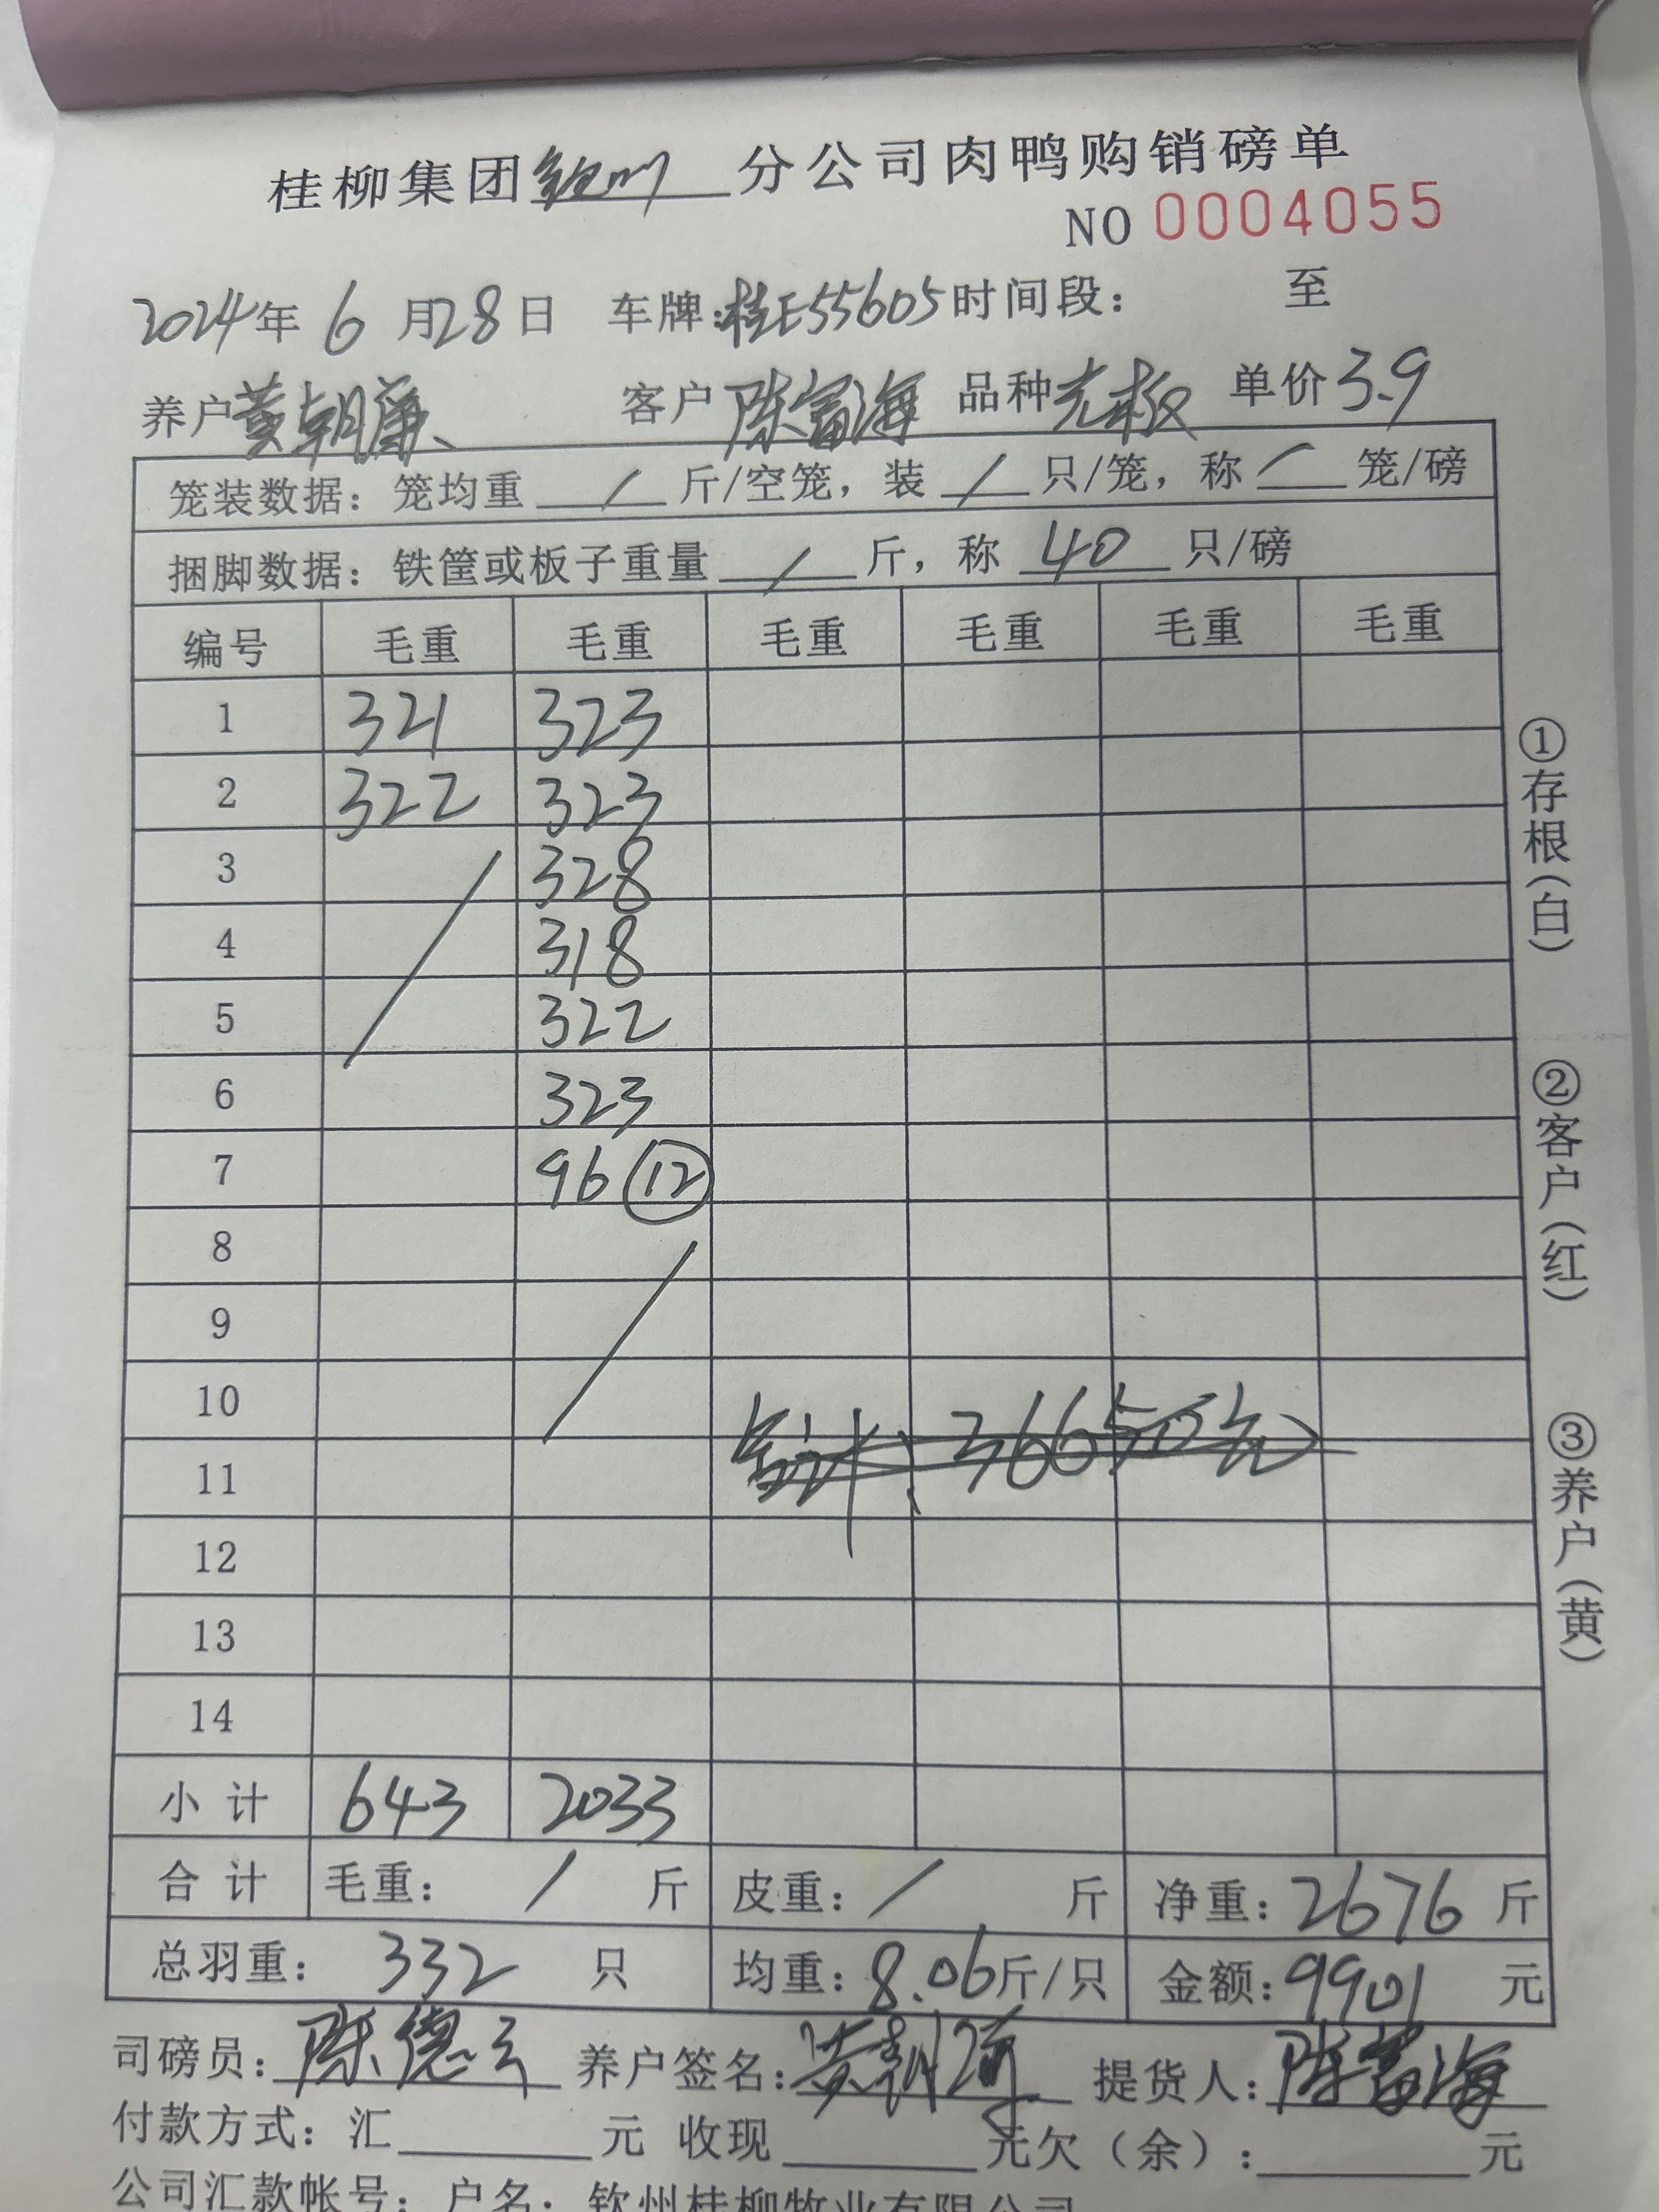 桂柳集团钦州分公司肉鸭购销磅单
NO 0004055
2024年6月28日 车牌:桂E55605 时间段: 至
养户 黄朝廉 客户 陈富海 品种 光板 单价 3.9
笼装数据: 笼均重 / 斤/空笼, 装 / 只/笼, 称 / 笼/磅
捆脚数据: 铁筐或板子重量 / 斤, 称 40 只/磅
编号 毛重 毛重 毛重 毛重 毛重 毛重
1 321 323
2 322 323
3 328
4 318
5 322
6 323
7 96 ⑫
8
9
10
11
12
13
14
小计 643 2033
合计 毛重: / 斤 皮重: / 斤 净重: 2676 斤
总羽重: 332 只 均重: 8.06 斤/只 金额: 9901 元
司磅员: 陈德云 养户签名: 提货人: 陈富海
付款方式: 汇 元 收现 元 欠(余): 元
公司汇款帐号: 户名: 钦州桂柳牧业有限公司
①存根(白) ②客户(红) ③养户(黄)